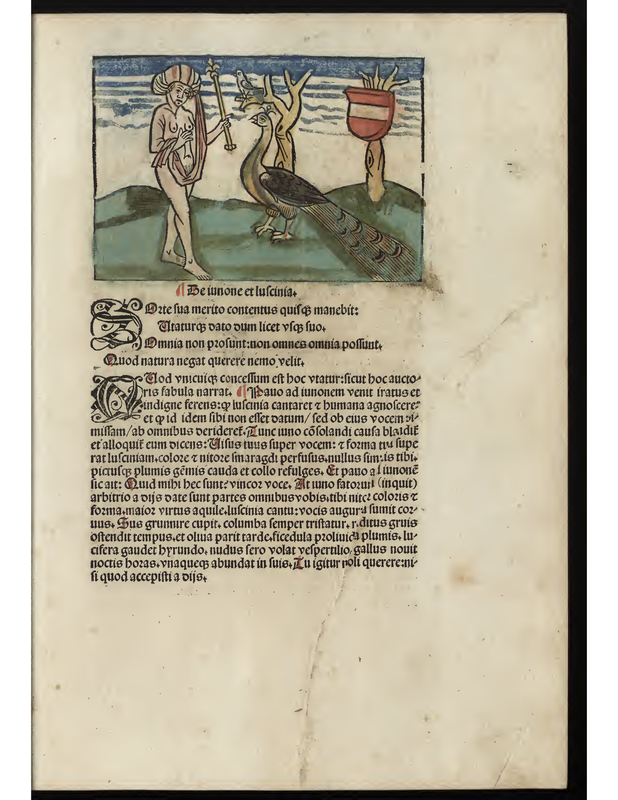 ¶ De iunone et luscinia.
Sorte sua merito contentus quisq₃ manebit:
Utaturq₃ dato dum licet vsq₃ suo.
Omnia non prosunt: non omnes omnia possunt.
Quod natura negat querere nemo velit.
Quod vnicuiq₃ concessum est hoc vtatur: sicut hoc aucto⸗
ris fabula narrat. ¶ Pauo ad iunonem venit iratus et
indigne ferens: ꝙ luscinia cantaret ⁊ humana agnosceret
et ꝙ id idem sibi non esset datum / sed ob eius vocem
missam / ab omnibus deridereť. Tunc iuno cōsolandi causa blādiť
et alloquiť eum dicens: Uisus tuus super vocem: ⁊ forma tua supe
rat lusciniam. colore ⁊ nitore smaragdi perfusus. nullus similis tibi.
pictusq₃ plumis gēmis cauda et collo refulges. Et pauo ad iunonē
sic ait: Quid mihi hec sunt? vincor voce. At iuno fatorum (inquit)
arbitrio a dijs date sunt partes omnibus vobis. tibi nitor coloris ⁊
forma. maior virtus aquile. luscinia cantu: vocis augura sumit cor⸗
uus. Sus grunnire cupit. columba semper tristatur. reditus gruis
ostendit tempus. et oliua parit tarde. ficedula plumis. lu⸗
cifera gaudet hyrundo. nudus sero volat vespertilio. gallus nouit
noctis horas. vnaqueq₃ abundat in suis. Tu igitur noli querere: ni⸗
si quod accepisti a dijs.